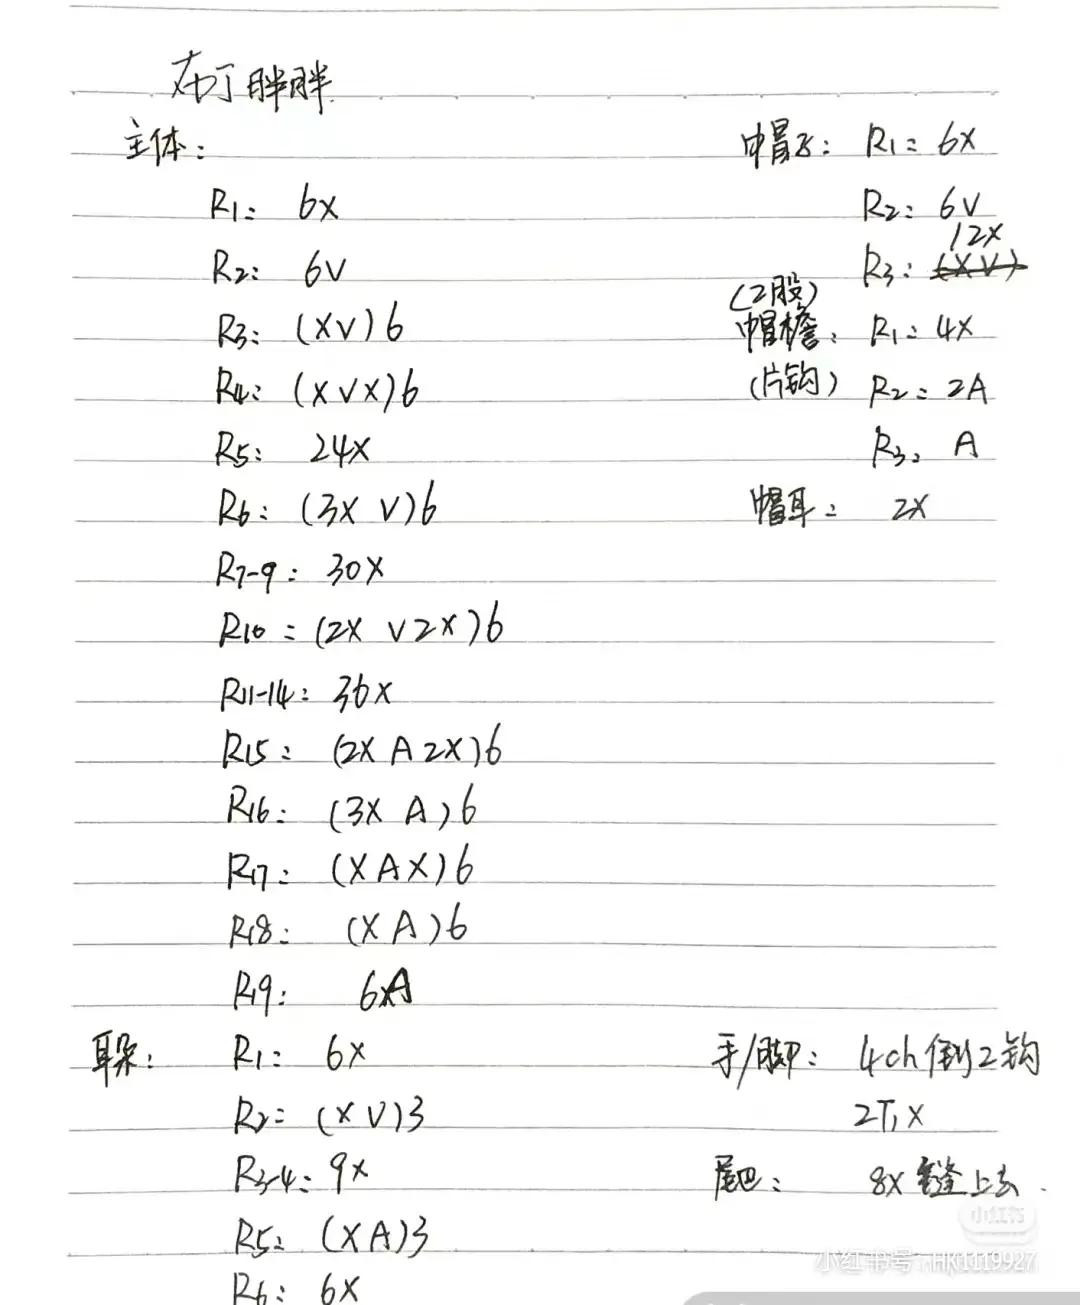 布丁胖胖
主体：
R1： 6X
R2： 6V
R3： (XV)6
R4： (XVX)6
R5： 24X
R6： (3X V)6
R7-9： 30X
R10： (2X V 2X)6
R11-14： 36X
R15： (2X A 2X)6
R16： (3X A)6
R17： (XAX)6
R18： (XA)6
R19： 6A
耳朵： R1： 6X
R2： (XV)3
R3-4： 9X
R5： (XA)3
R6： 6X
帽子： R1： 6X
R2： 6V
12X
R3： (XV)
(2股)
帽檐： R1： 4X
(片钩) R2： 2A
R3： A
帽耳： 2X
手/脚： 4ch 倒2钩
2T, X
尾巴： 8X 缝上去.
小红书
小红书号：HK1119927